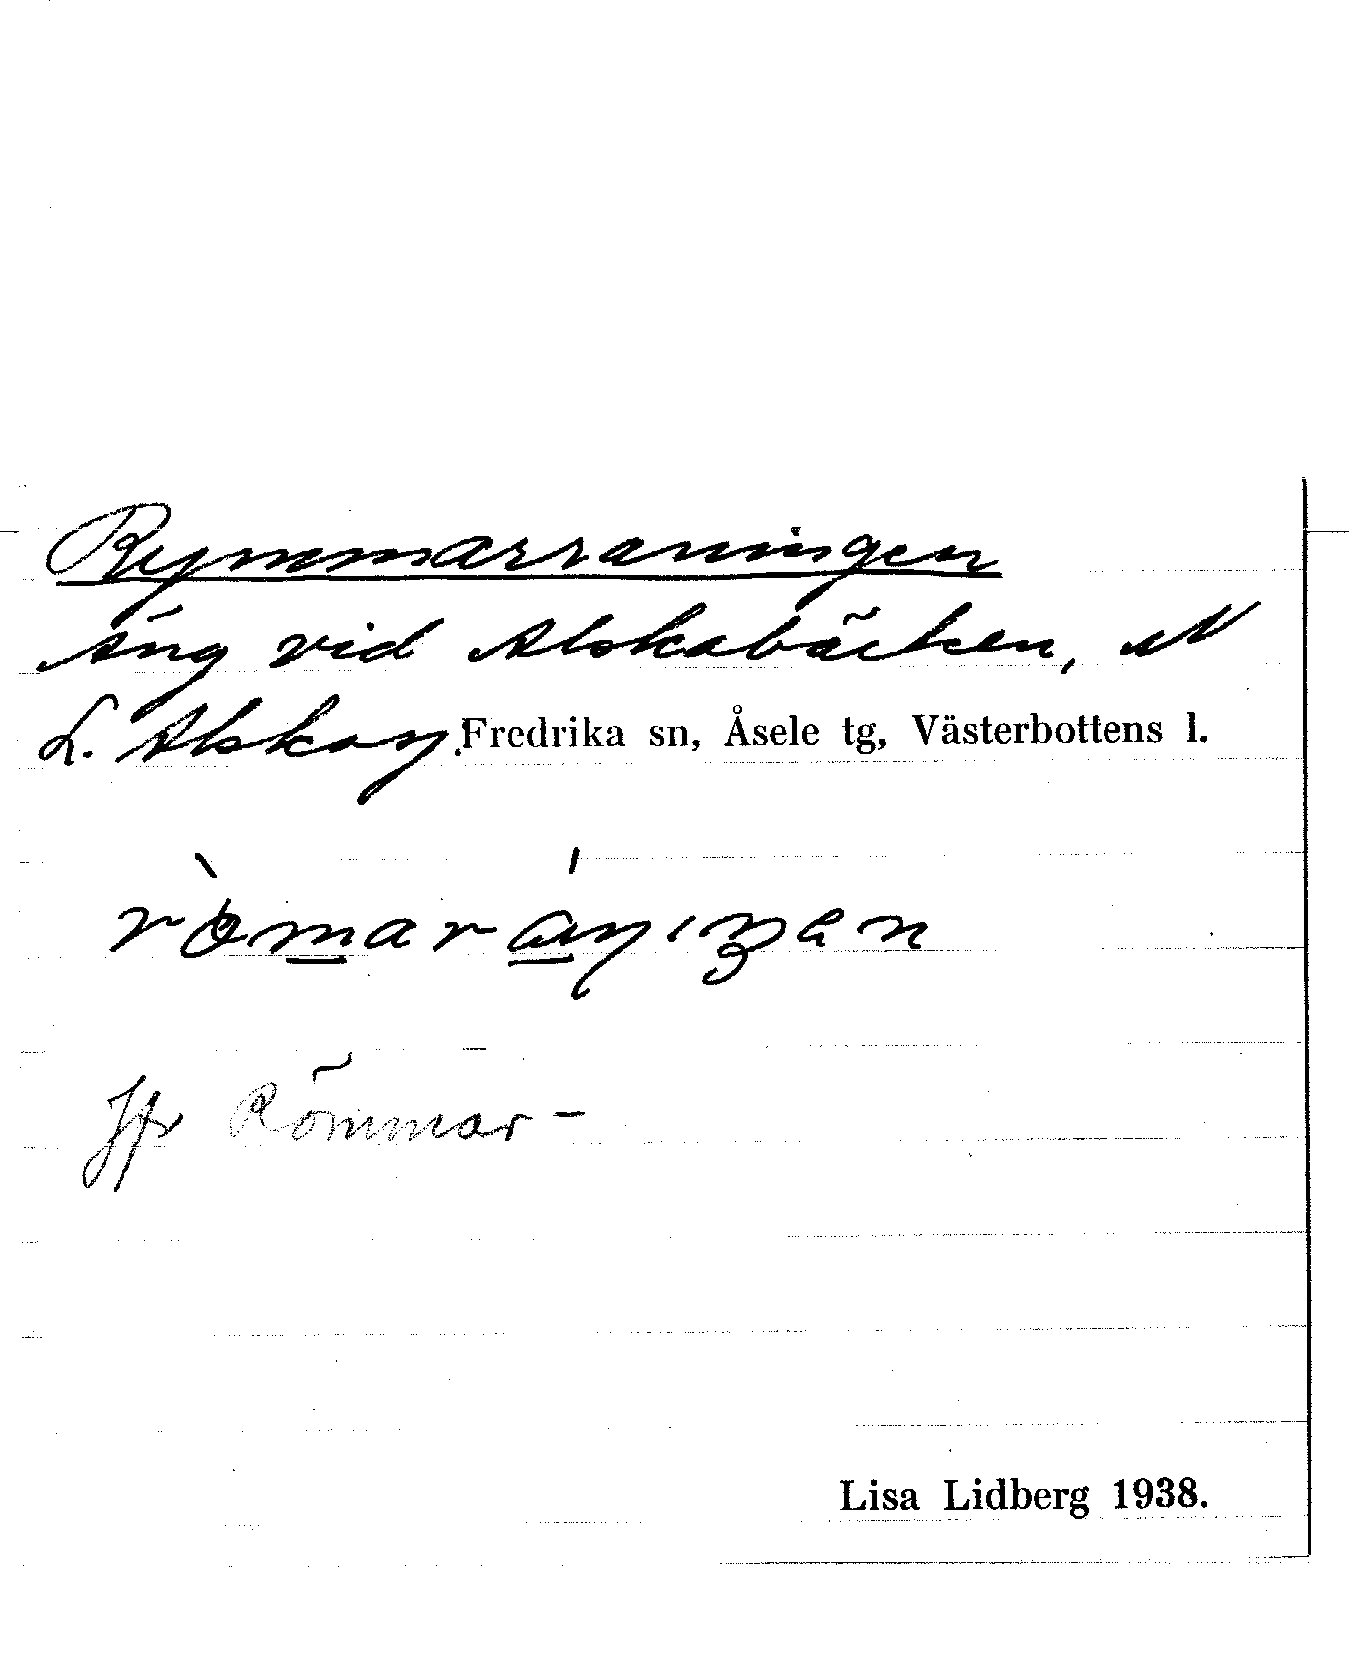 Rymmarraningen
Äng vid Alskabäcken, N
L. Alskay. Fredrika sn, Åsele tg, Västerbottens l.
Jfr Römmar-
Lisa Lidberg 1938.